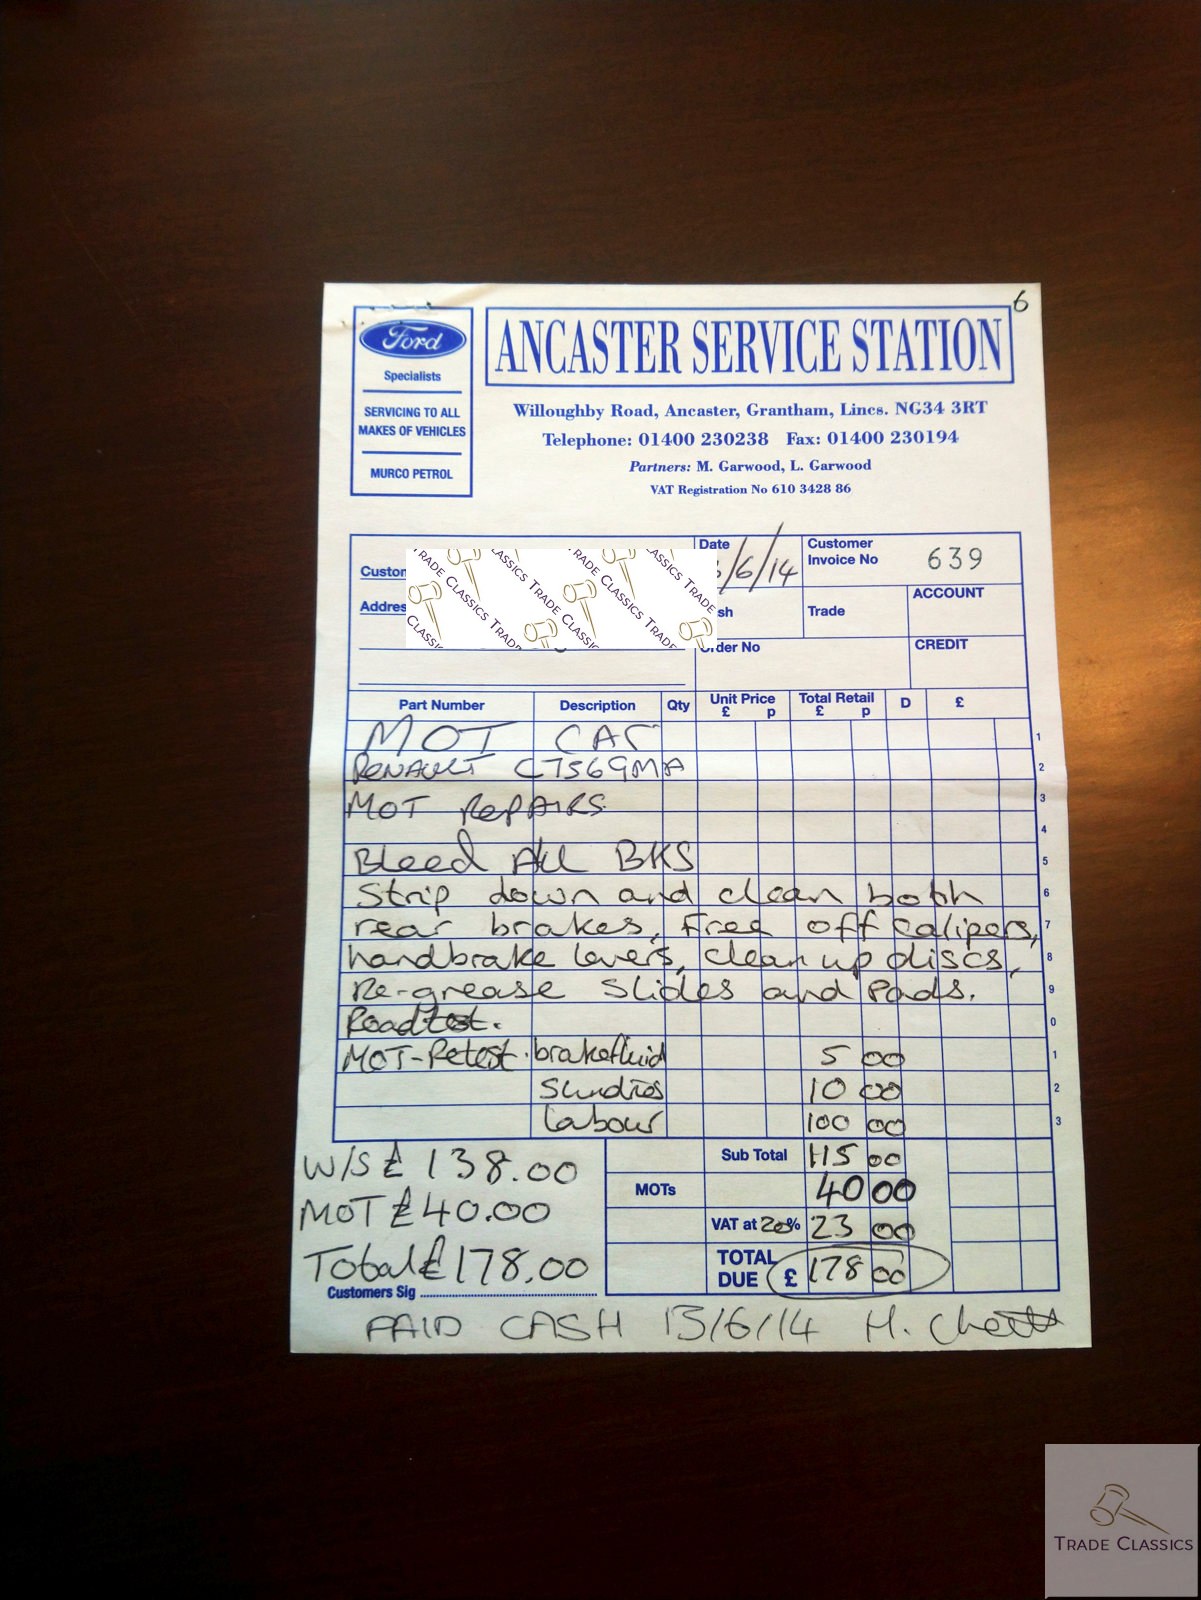 6
Ford
Specialists
SERVICING TO ALL
MAKES OF VEHICLES
MURCO PETROL
ANCASTER SERVICE STATION
Willoughby Road, Ancaster, Grantham, Lincs. NG34 3RT
Telephone: 01400 230238 Fax: 01400 230194
Partners: M. Garwood, L. Garwood
VAT Registration No 610 3428 86
Date /6/14
Customer
Invoice No 639
Trade
ACCOUNT
Order No
CREDIT
TRADE CLASSICS TRADE CLASSICS TRADE CLASSICS TRADE
Part Number Description Qty Unit Price £ p Total Retail £ p D £
MOT CAR 1
RENAULT C756GMA 2
MOT REPAIRS 3
4
Bleed All BKS 5
Strip down and clean both 6
rear brakes, Free off calipers, 7
handbrake levers, clean up discs, 8
Re-grease Slides and Pads. 9
Roadtest. 0
MOT-Retest. brakefluid 5 00 1
Sundries 10 00 2
Labour 100 00 3
W/S £138.00 Sub Total 115 00
MOT £40.00 MOTs 40 00
VAT at 20% 23 00
Total £178.00 TOTAL DUE £ 178 00
Customers Sig
PAID CASH 13/6/14 H.
TRADE CLASSICS